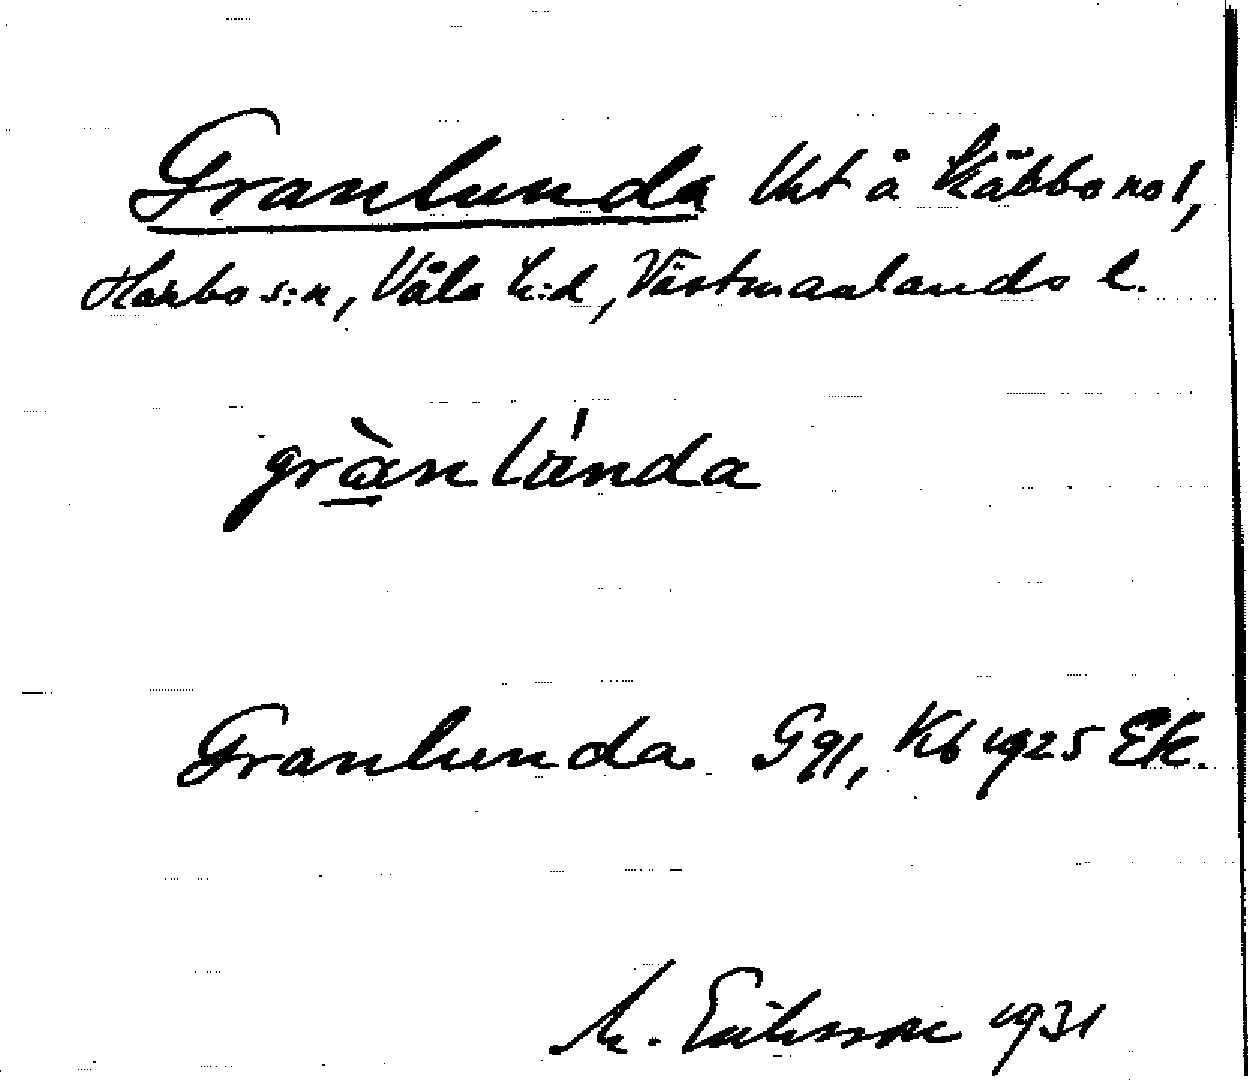 Granlunda Uht å Käbbo no 1,
Harbo s:n, Våla h:d, Västmanlands l.
gràn lúnda
Granlunda Ggl, Kb 1925 Ek.
M. Eriksson 1931